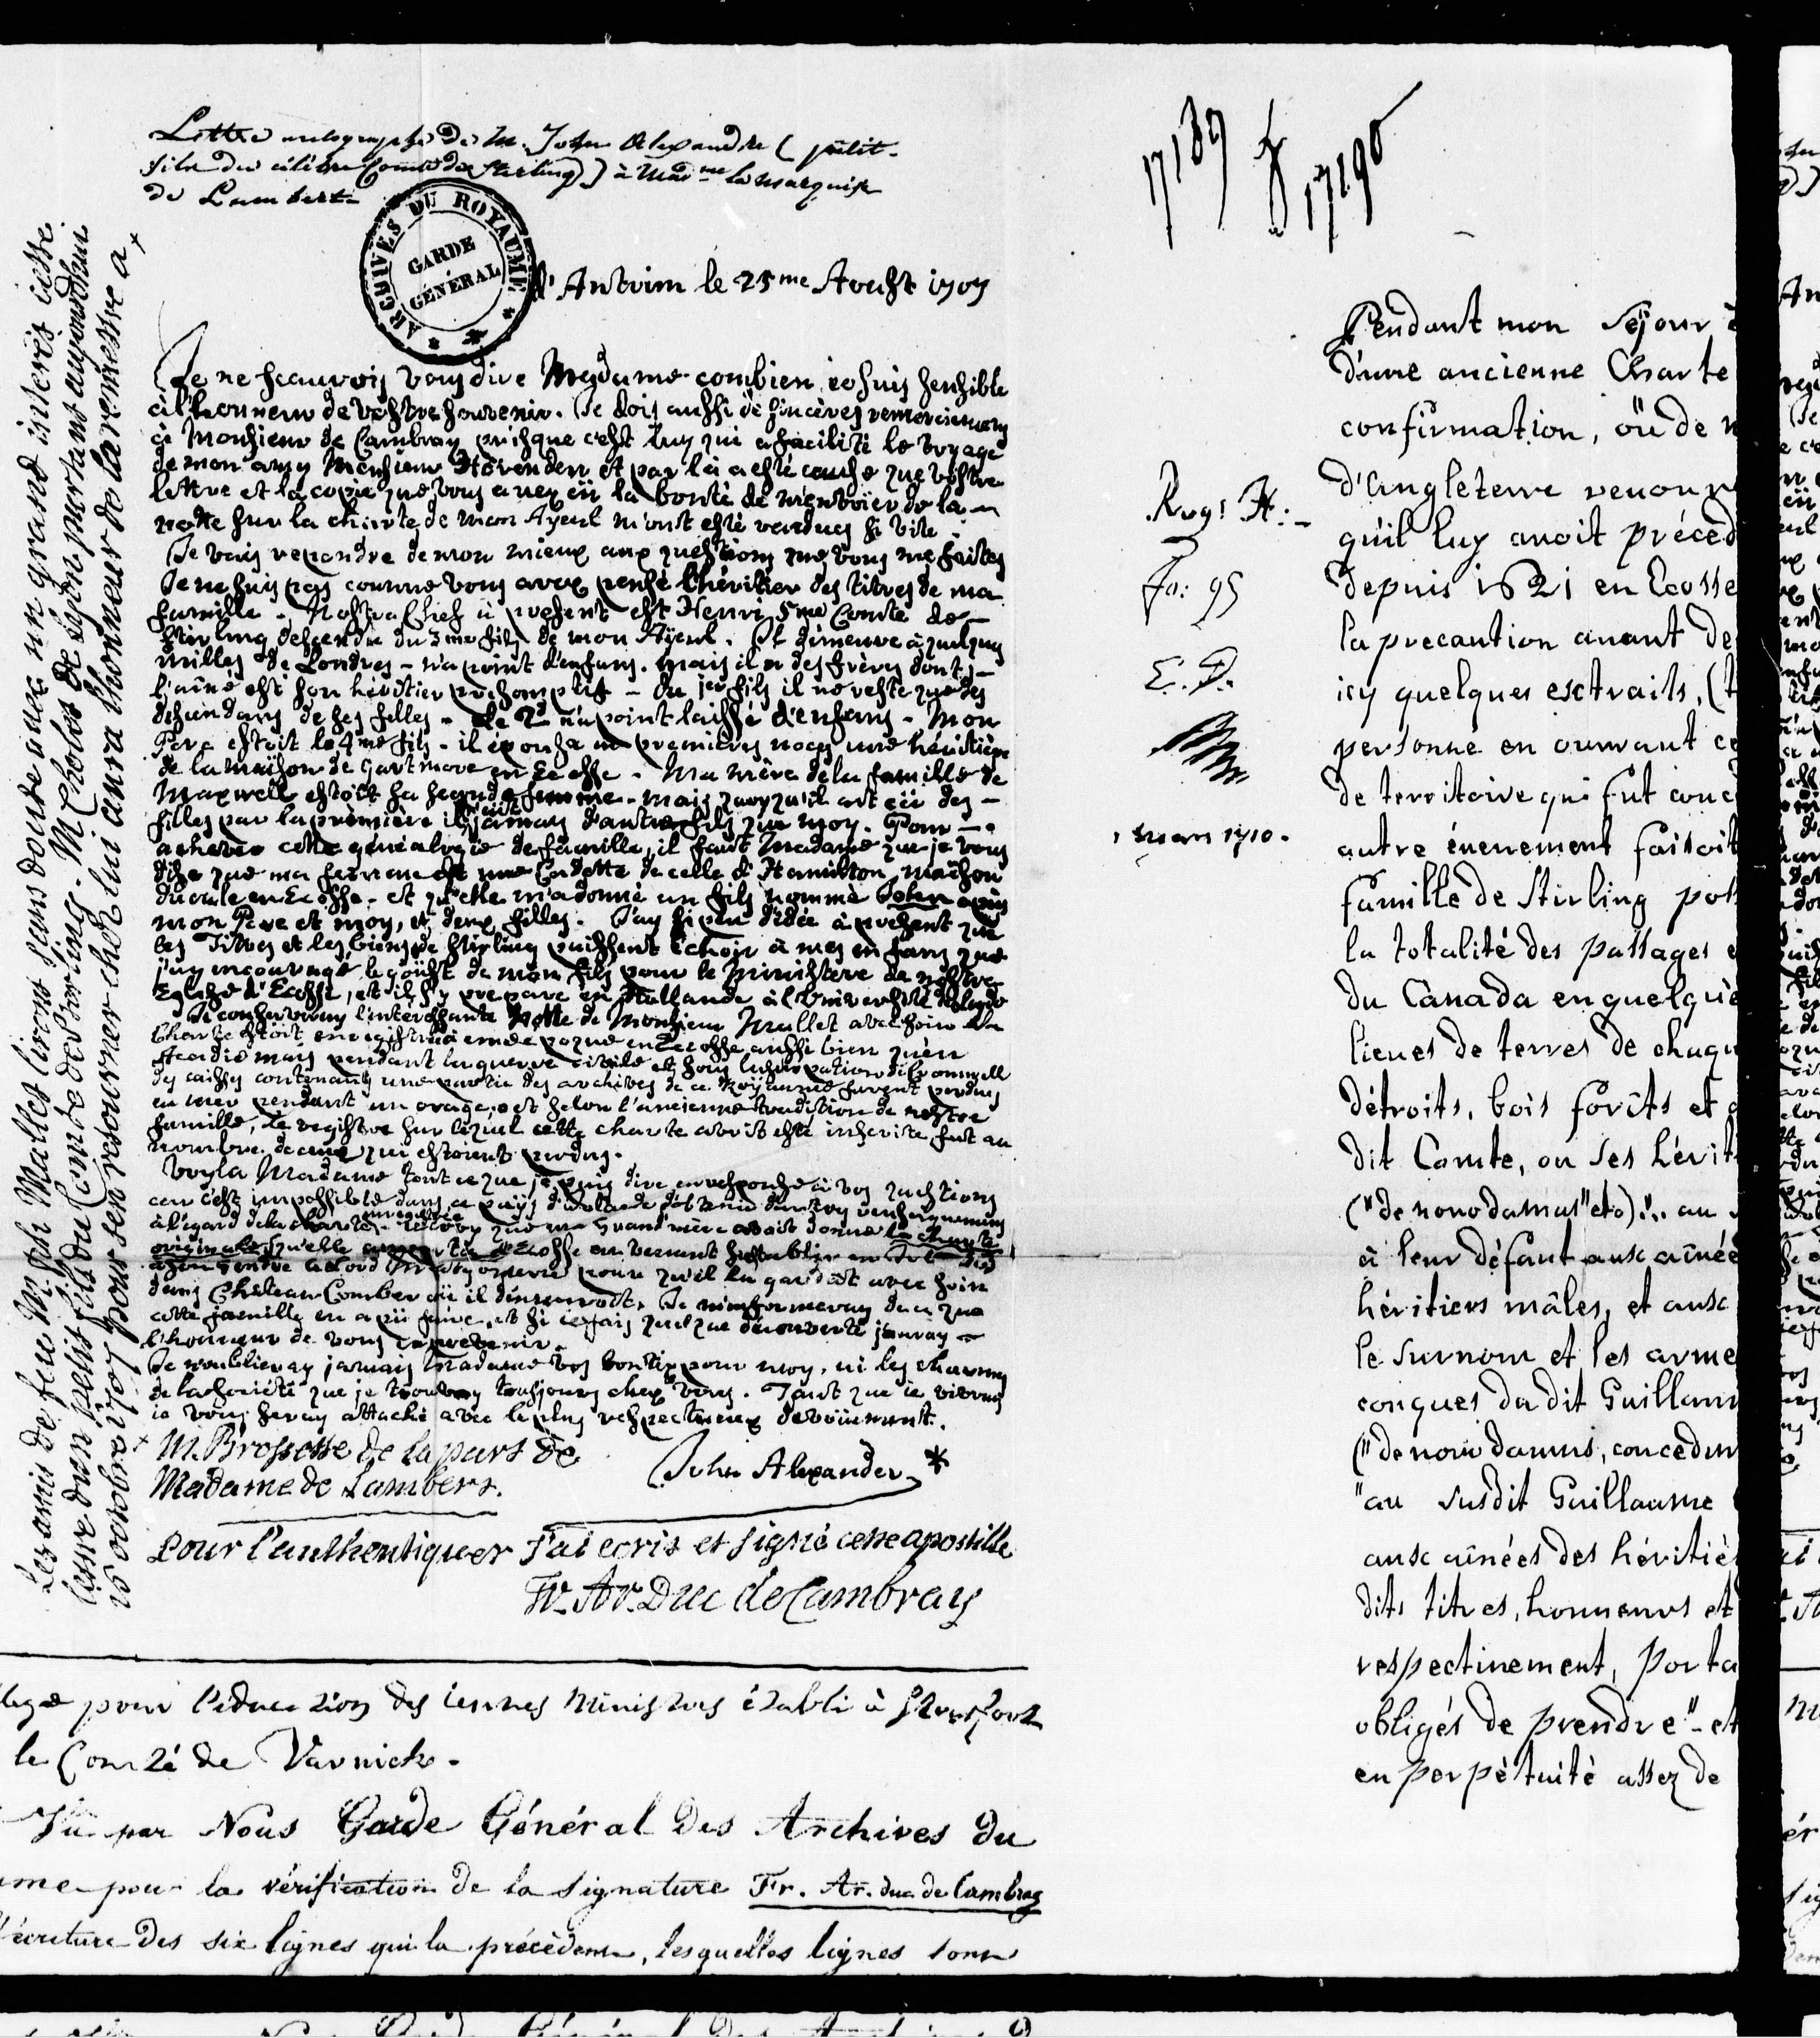 Lettre autographe de M. John Alexandre (petit-
fils du célèbre Comte de Sterling) à Madme la Marquise
de Lambert
ARCHIVES DU ROYAUME
GARDE
GÉNÉRAL
d'Antrim le 25me Aoust 1707
Je ne sçaurois vous dire Madame combien ie suis sensible
à l'honneur de vostre souvenir. Je dois aussi de sincères remerciemens
à Monsieur de Cambray puisque c'est luy qui a facilité le voyage
de mon amy Monsieur Hovenden et par là a esté cause que vostre
lettre et la copie que vous avez eü la bonté de m'envoïer de la
notte sur la charte de mon Ayeul m'ont esté rendues si vite.
Je vais repondre de mon mieux aux questions que vous me faites
Je ne suis pas comme vous avez pensé l'héritier des titres de ma
famille. Nostre Chef à present est Henri 5me Comte de
Stirling descendu du 3me fils de mon Ayeul. Il demeure à quelques
milles de Londres - n'a point d'enfans. mais il a des frères dont
l'aîné est son héritier presomptif - Du 1er fils il ne reste que des
descendans de ses filles - Le 2d n'a point laissé d'enfans. Mon
Pere estoit le 4me fils - il épousa en premières noces une héritière
de la maison de Gartmore en Ecosse. Ma mère de la famille de
Maxwell estoit sa seconde femme - mais quoyqu'il ait eü des
filles par la première il n'eut jamais d'autre fils que moy. Pour
achever cette généalogie de famille, il faut Madame que je vous
dise que ma femme est une Cadette de celle d'Hamilton, maison
ducale en Ecosse, et qu'elle m'a donné un fils nommé John après
mon Pere et moy, et deux filles. J'ay si peu d'idée à present que
les Titres et les biens de Stirling puissent échoir à mes enfans que
j'ay encouragé le goüst de mon fils pour le ministere de nostre
Eglise d'Ecosse, et il s'y prepare en Hollande à l'Université de Leyde
Je conserveray l'interessante Notte de Monsieur Mallet avec soin La
Charte estoit enregistrée en Ecosse aussi bien qu'en
Acadie mais pendant la guerre civile et sous l'usurpation de Cromwell
des caisses contenants une partie des archives de ce Royaume furent perdues
en mer pendant un orage, et selon l'ancienne tradition de nostre
famille, le registre sur lequel cette charte avoit esté inscrite fut au
nombre de ceux qui estoient perdus.
Voyla Madame tout ce que je puis dire en responce à vos questions
car c'est impossible dans ce païs d'Irlande d'obtenir d'autres renseignemens
à l'égard de la charte enregistrée. Je croy que ma Grand'mère avoit donné la charte
originale qu'elle apporta d'Ecosse en venant s'establir en Irlande
à son gendre le Lord Montgomerie pour qu'il la gardast avec soin
dans Chateau Comber où il demeuroit. Je m'informeray de ce que
cette famille en a pü faire, et si ie fais quelque découverte j'auray
l'honneur de vous en prevenir.
Je n'oublieray jamais Madame vos bontés pour moy, ni les charmes
de la société que je trouvay tousjours chez vous. Tant que ie vivray
ie vous seray attaché avec le plus respectueux devoüement.
John Alexander *
+ M. Brossette de la part de
Madame de Lambert.
Les amis de feu Mr Ph Mallet liront sans doute avec un grand interis cette
lettre d'un petit fils du Comte de Sterling. M Cholet de Lyon partant aujourdhui
16 octobre 1707 pour s'en retourner chez lui aura l'honneur de la remettre a +
Pour l'authentiquer J'ai ecrit et signé cette apostille
Fr. Ar. Duc de Cambray
llege pour l'éducation des ieunes Ministres établi à Stratfort
le Comté de Varnick.
Vu par Nous Garde Général des Archives du
ume pour la vérification de la signature Fr. Ar. duc de Cambray
l'écriture des six lignes qui la précèdent, lesquelles lignes sont
17189 & 17190
Reg: H:
fo: 95
E. D.
mars 1710.
Pendant mon séjour
d'une ancienne Charte
confirmation, oü de n
d'Angleterre renouv
qu'il luy avoit précéd
depuis 1621 en Ecosse
la precaution avant de
icy quelques extraits, (
personne en ouvrant ce
de territoire qui fut conc
autre évenement faisoit
famille de Stirling pos
la totalité des passages e
du Canada en quelque
lieues de terres de chaqu
détroits, bois forêts et
dit Comte, ou ses hérit
("de novo damus" etc)... au
à leur défaut aux aînée
héritiers mâles, et aux
le surnom et les arme
conques du dit Guillaum
("de novo damus, concedim
"au susdit Guillaume
aux aînées des héritiè
dits titres, honneurs et
respectivement, porta
obligés de prendre" - et
en perpétuité assez de